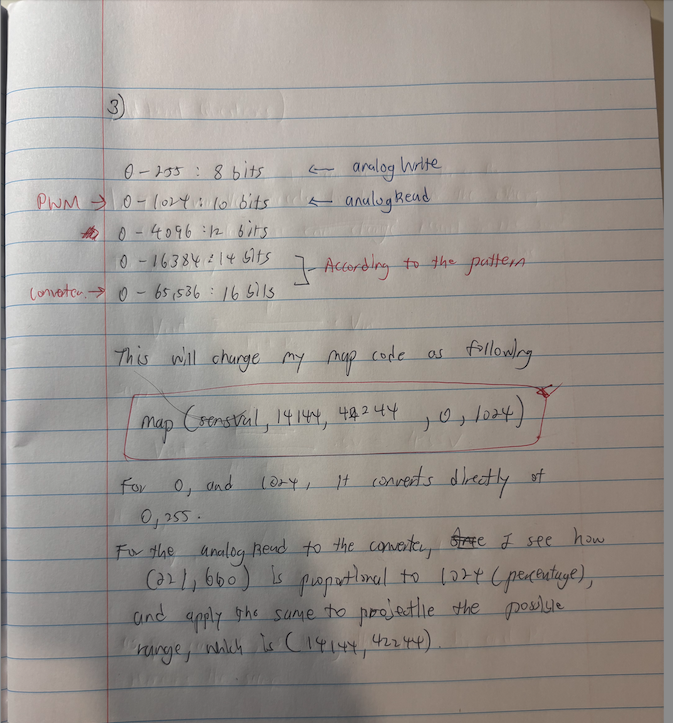 3)
0-255 : 8 bits ← analogWrite
PWM → 0-1024 : 10 bits ← analogRead
0-4096 : 12 bits
0-16384 : 14 bits
According to the pattern
Converter → 0-65,536 : 16 bits
This will change my map code as following
map (sensVal, 14144, 42244, 0, 1024)
For 0, and 1024, it converts directly of
0,255.
For the analogRead to the converter, I see how
(221, 660) is proportional to 1024 (percentage),
and apply the same to projectile the possible
range, which is (14144, 42244).